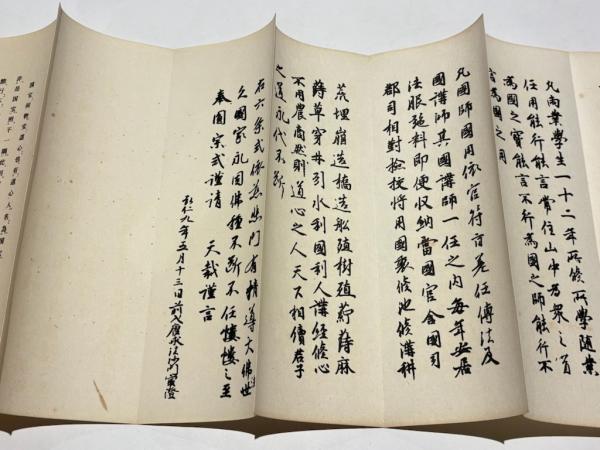 凡兩業學生一十二年所修所學隨業
任用能行能言常住山中為衆之首
為國之寶能言不行為國之師能行不
言為國之用
凡國師國用依官符旨差任傳法及
國講師其國講師一任之内每年安居
法服施料即便收納當國官舍國司
郡司相對檢挍將用國裏修池修溝耕
荒埋崩造橋造船殖樹殖蒔麻
蒔草穿井引水利國利人講經修心
不用農商然則道心之人天下相續君子
之道永代不斷
右六条式依慈悲門有情導大佛法世
久國家永固佛種不斷不任慺慺之至
奉圓宗式謹請 天裁謹言
弘仁九年五月十三日前入唐求法沙門最澄